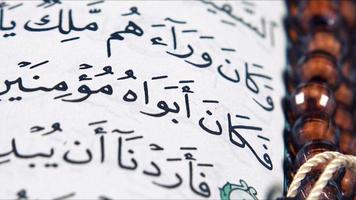 السَّفِينَةُ
وَكَانَ وَرَآءَهُم مَّلِكٌ يَأْ
فَكَانَ أَبَوَاهُ مُؤْمِنَيْنِ
فَأَرَدْنَآ أَن يُبْدِ